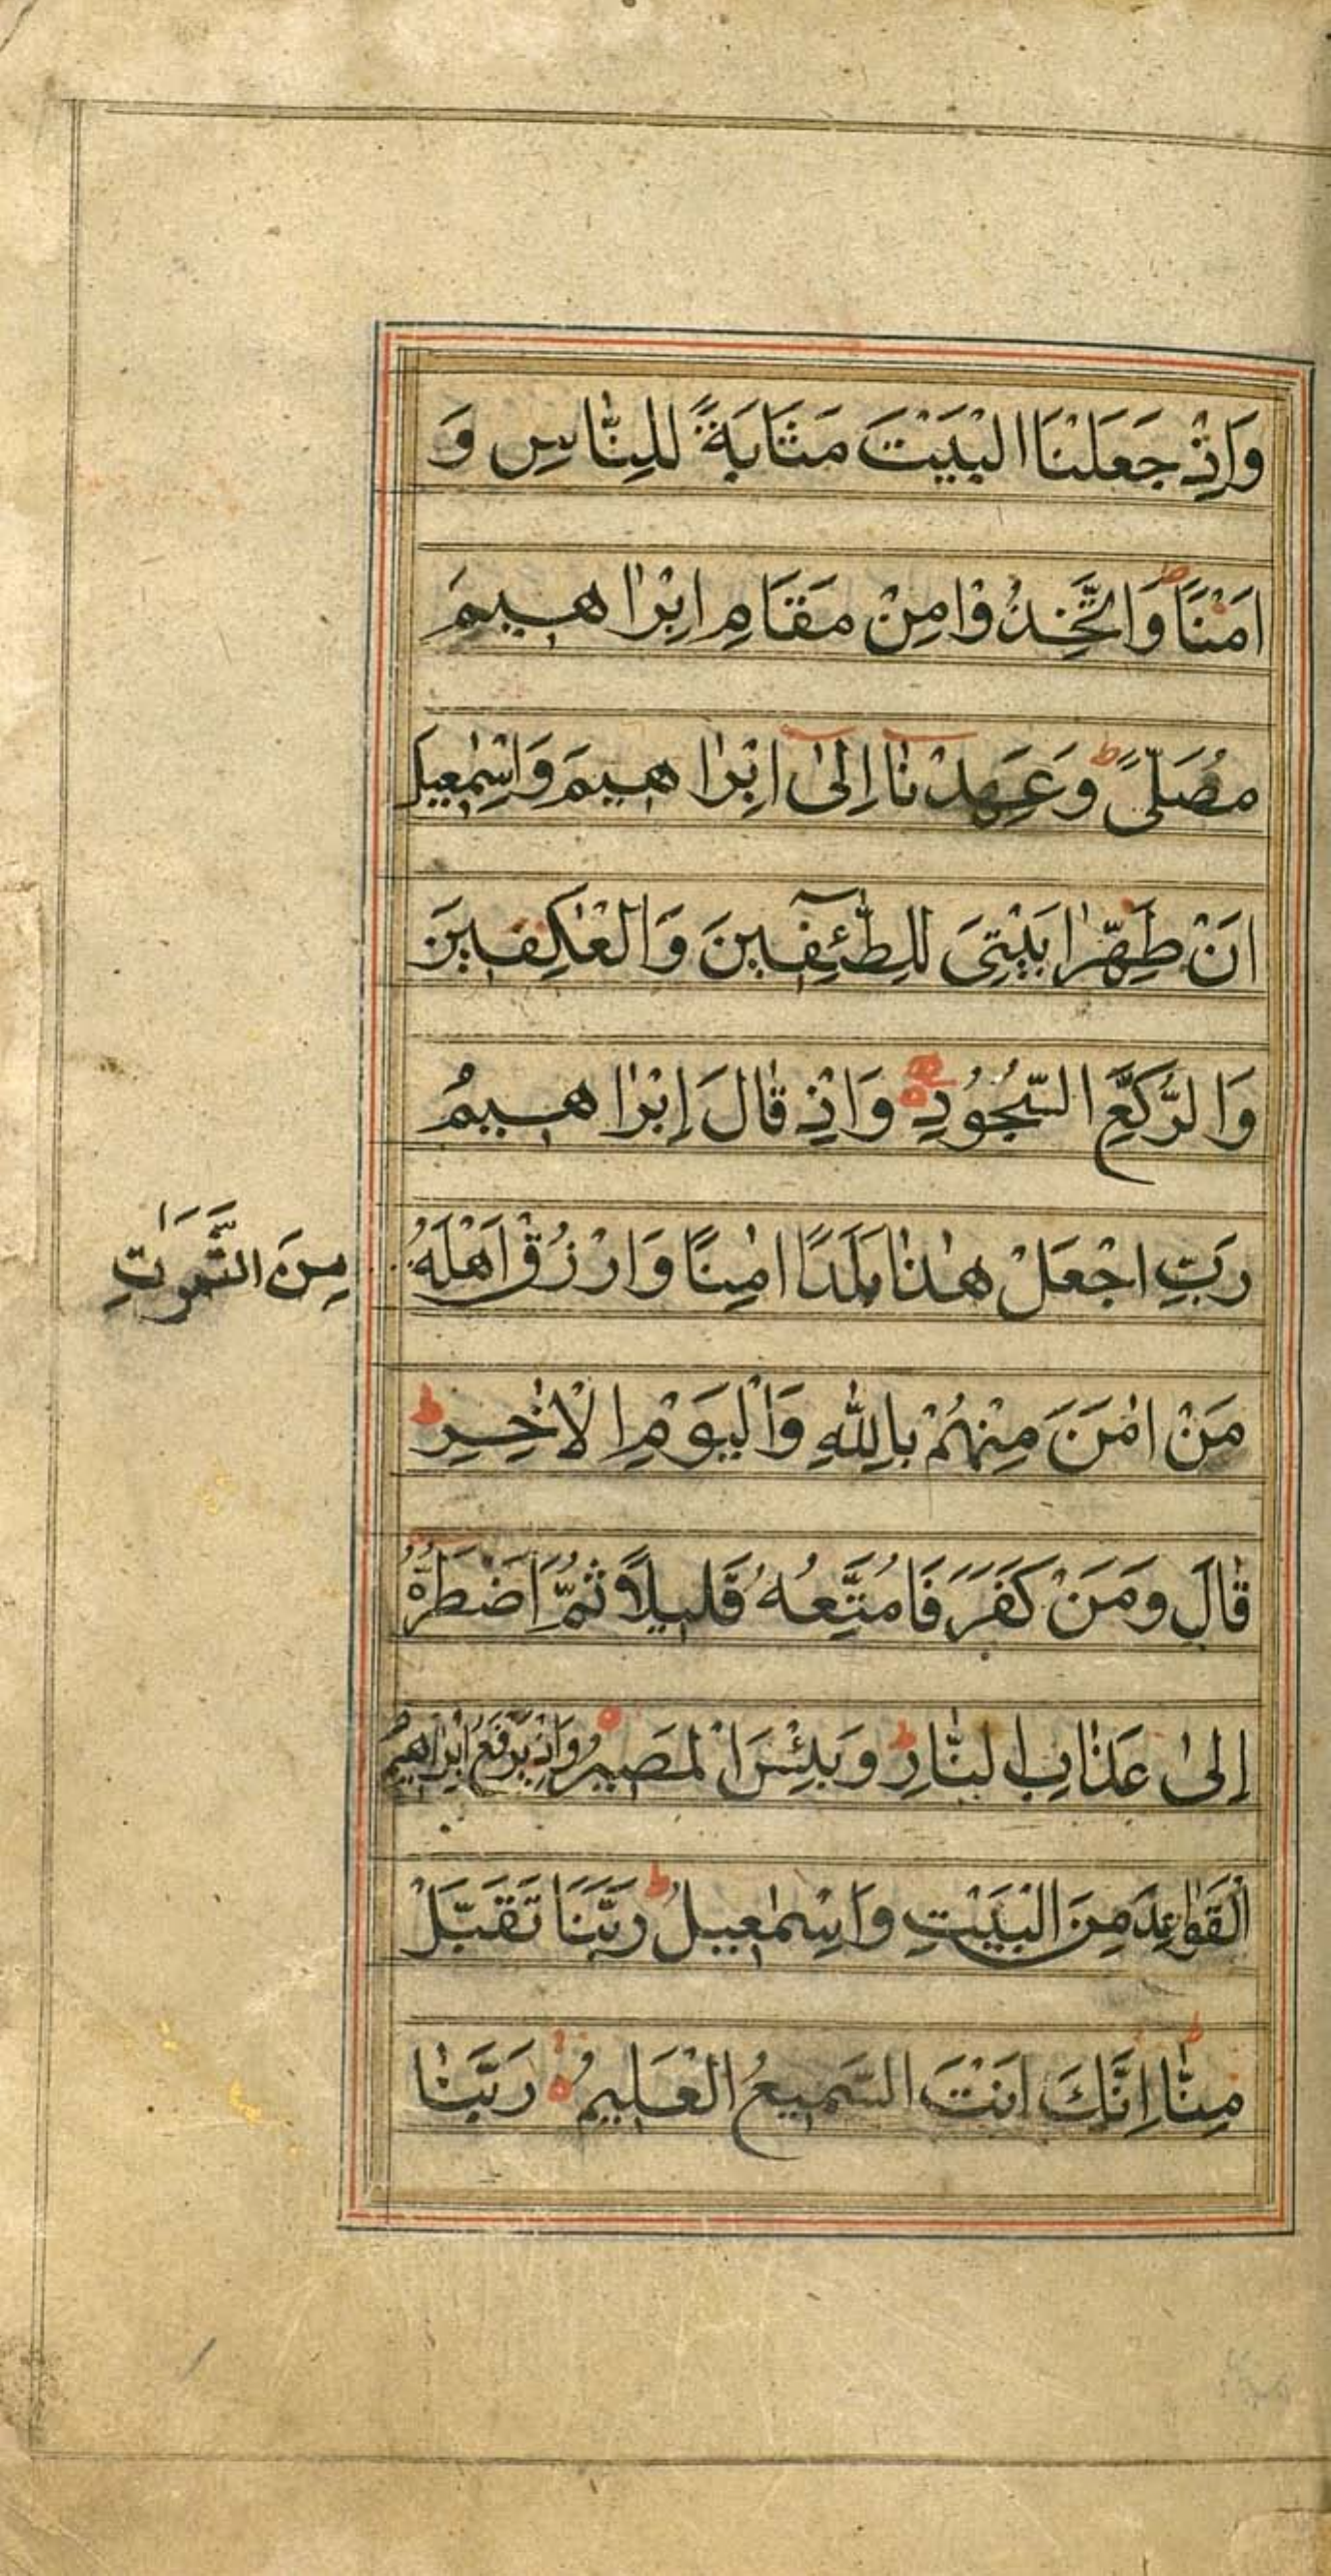 وَاِذْ جَعَلْنَا الْبَيْتَ مَثَابَةً لِلنَّاسِ وَ
اَمْنًا ؕ وَاتَّخِذُوْا مِنْ مَقَامِ اِبْرٰاهٖيمَ
مُصَلًّى ؕ وَعَهِدْنَا اِلٰى اِبْرٰاهٖيمَ وَاِسْمٰعٖيلَ
اَنْ طَهِّرٰا بَيْتِىَ لِلطَّٓئِفٖينَ وَالْعٰكِفٖينَ
وَالرُّكَّعِ السُّجُوْدِ وَاِذْ قَالَ اِبْرٰاهٖيمُ
رَبِّ اجْعَلْ هٰذٰا بَلَدًا اٰمِنًا وَارْزُقْ اَهْلَهُ
مِنَ الثَّمَرٰتِ
مَنْ اٰمَنَ مِنْهُمْ بِاللّٰهِ وَالْيَوْمِ الْاٰخِرِ ؕ
قٰالَ وَمَنْ كَفَرَ فَاُمَتِّعُهُ قَلٖيلًا ثُمَّ اَضْطَرُّهُ
اِلٰى عَذٰابِ النّٰارِ ؕ وَبِئْسَ الْمَصٖيرُ وَاِذْ يَرْفَعُ اِبْرٰاهٖيمُ
الْقَوٰاعِدَ مِنَ الْبَيْتِ وَاِسْمٰعٖيلُ ؕ رَبَّنَا تَقَبَّلْ
مِنّٰا ؕ اِنَّكَ اَنْتَ السَّمٖيعُ الْعَلٖيمُ رَبَّنٰا